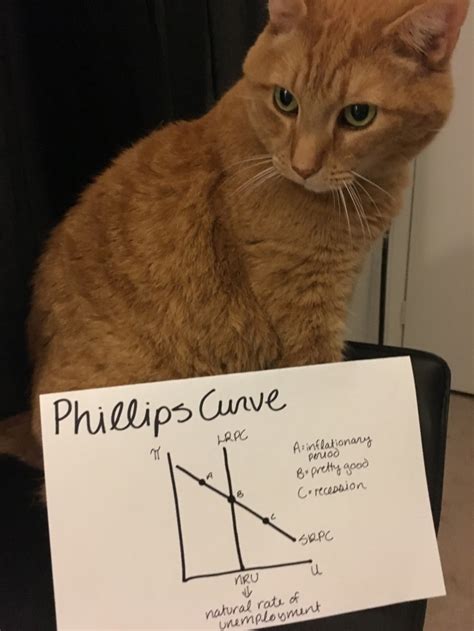 Phillips Curve
LRPC
π
A
A= inflationary
period
B= pretty good
B
C= recession
C
SRPC
NRU
u
natural rate of
unemployment